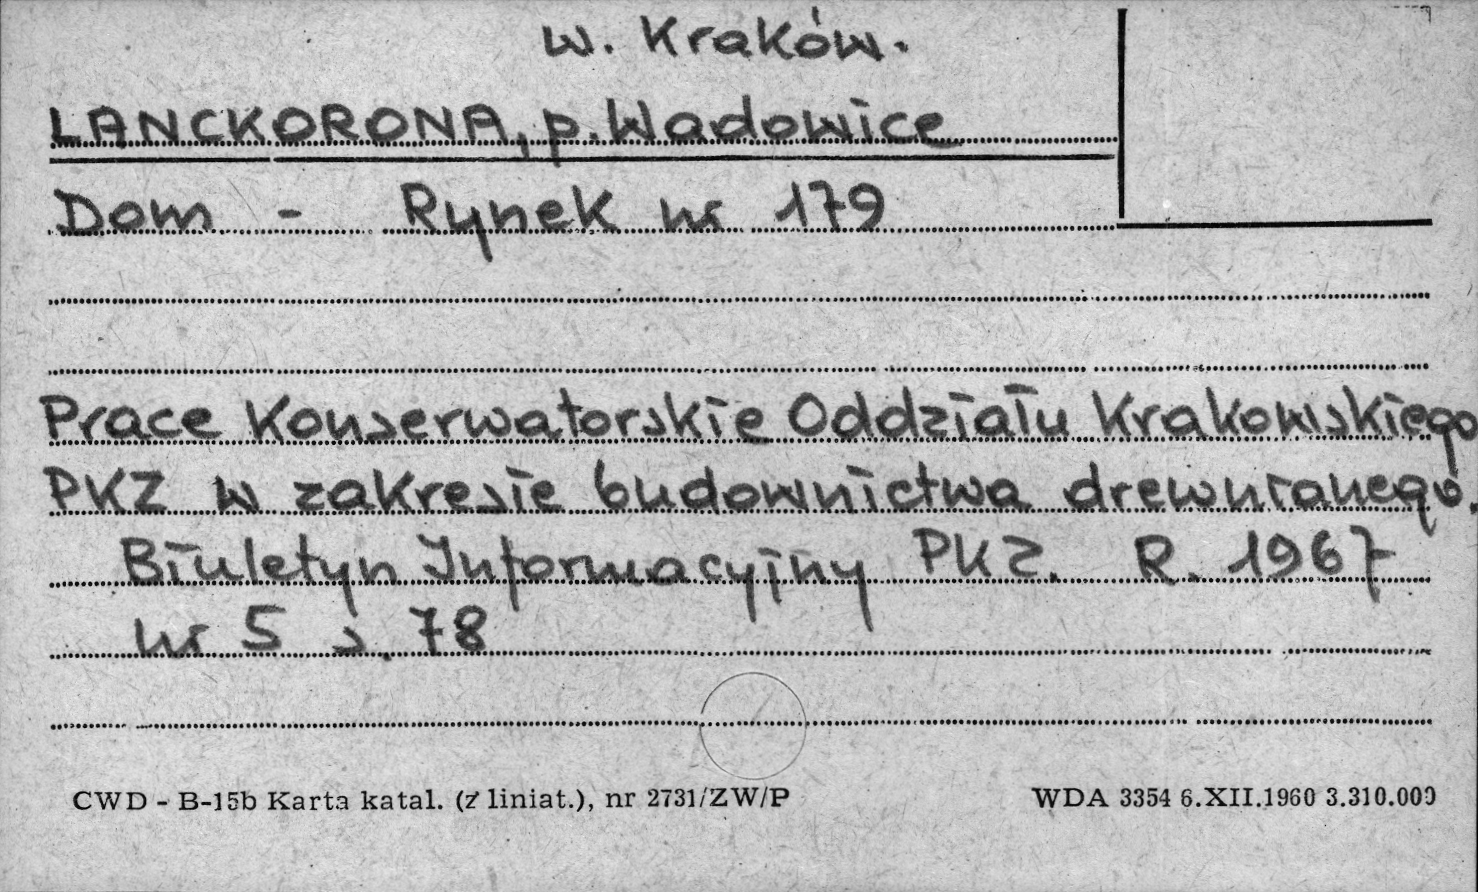 w. Kraków.
LANCKORONA, p. Wadowice
Dom - Rynek nr 179
Prace Konserwatorskie Oddziału Krakowskiego
PKZ w zakresie budownictwa drewnianego.
Biuletyn Informacyjny PKZ. R. 1967
nr 5 s. 78
CWD - B-15b Karta katal. (z liniat.), nr 2731/ZW/P
WDA 3354 6.XII.1960 3.310.000